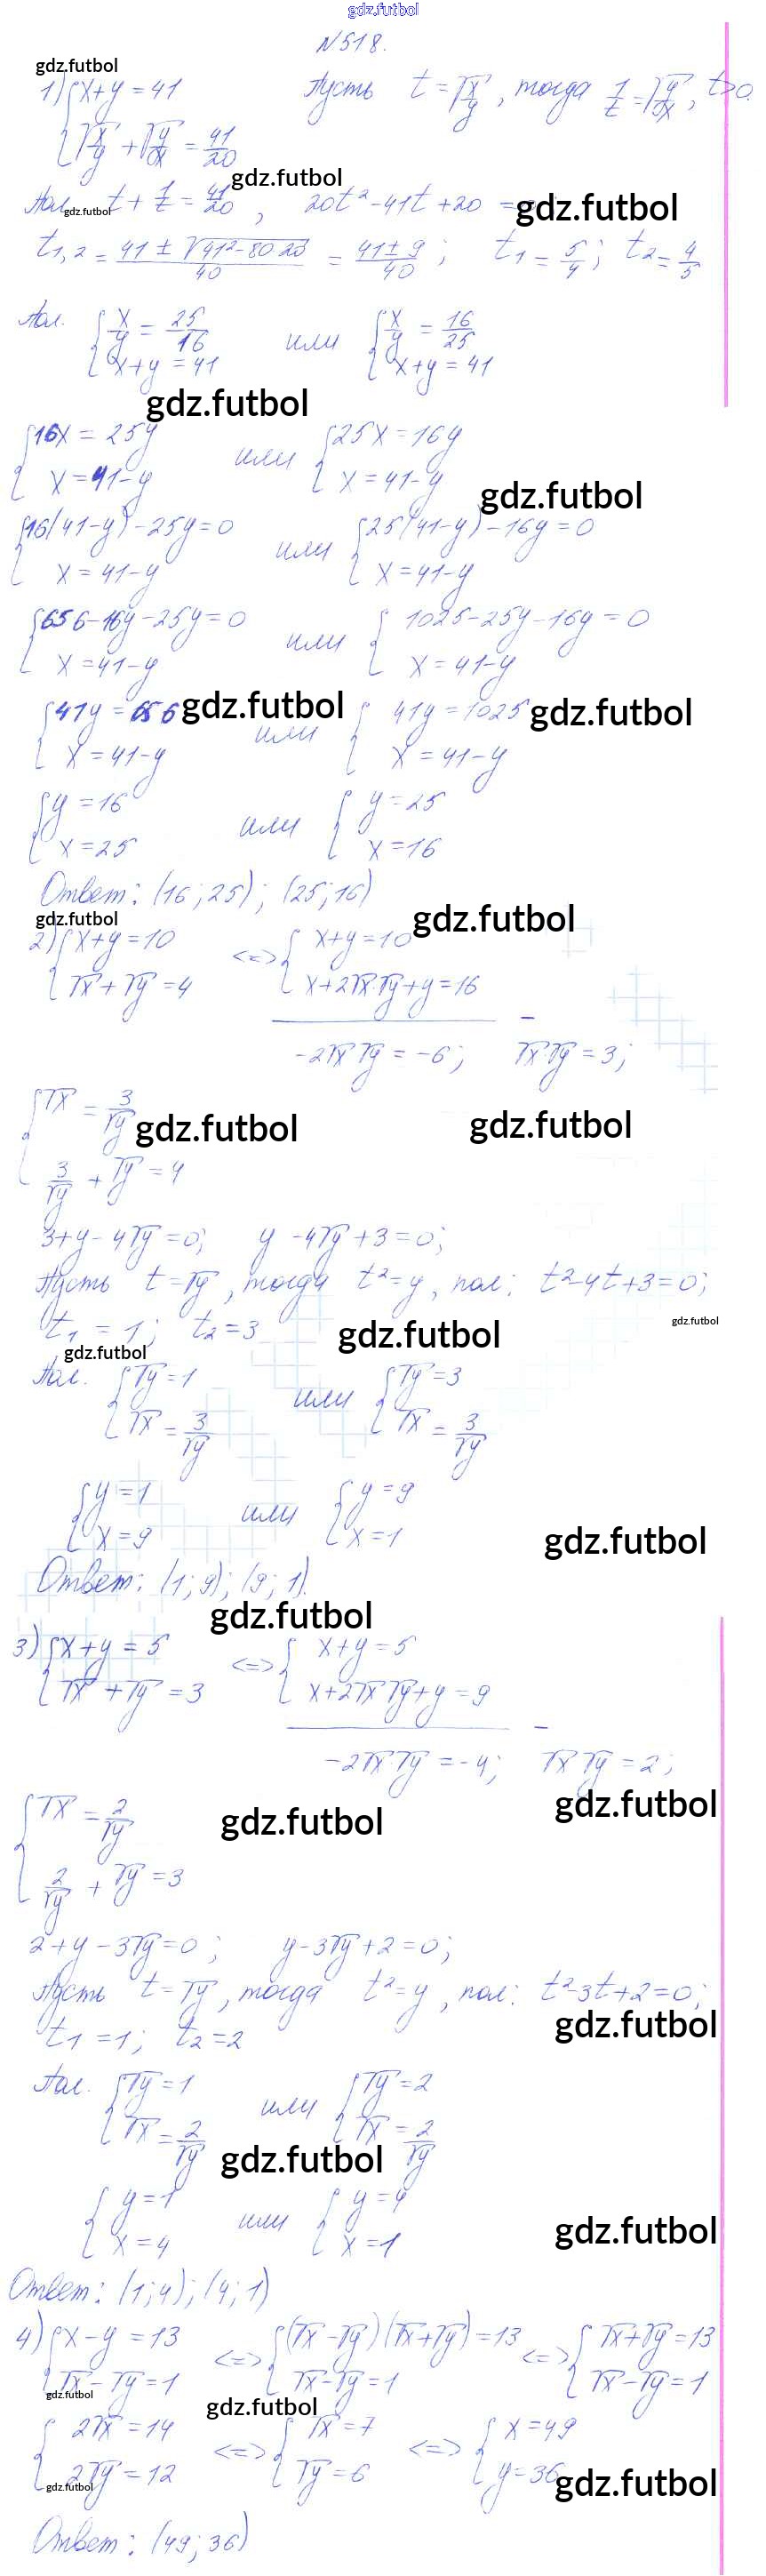 gdz.futbol
N518.
gdz.futbol
1) { x+y=41 Пусть t=√(x/y), тогда 1/t=√(y/x), t>0.
√(x/y) + √(y/x) = 41/20
gdz.futbol
Пол. t + 1/t = 41/20, 20t²-41t+20 =
gdz.futbol
gdz.futbol
t1,2 = (41 ± √(41²-80·20))/40 = (41±9)/40; t1 = 5/4; t2 = 4/5
Пол. { x/y = 25/16 или { x/y = 16/25
x+y=41 x+y=41
gdz.futbol
{ 16x = 25y или { 25x=16y
x=41-y x=41-y
gdz.futbol
{ 16(41-y)-25y=0 или { 25(41-y)-16y=0
x=41-y x=41-y
{ 656-16y-25y=0 или { 1025-25y-16y=0
x=41-y x=41-y
{ 41y=656 gdz.futbol или { 41y=1025 gdz.futbol
x=41-y x=41-y
{ y=16 или { y=25
x=25 x=16
Ответ: (16;25); (25;16)
gdz.futbol gdz.futbol
2) { x+y=10 <=> { x+y=10
√x+√y=4 x+2√x√y+y=16
-
-2√x√y = -6; √x√y = 3;
{ √x = 3/√y
gdz.futbol gdz.futbol
3/√y + √y = 4
3+y-4√y=0; y-4√y+3=0;
Пусть t=√y, тогда t²=y, пол: t²-4t+3=0;
t1 = 1; t2=3
gdz.futbol gdz.futbol
gdz.futbol
Пол. { √y=1 или { √y=3
√x = 3/√y √x = 3/√y
{ y=1 или { y=9
x=9 x=1
gdz.futbol
Ответ: (1;9); (9;1).
gdz.futbol
3) { x+y=5 <=> { x+y=5
√x+√y=3 x+2√x√y+y=9
-
-2√x√y=-4; √x√y=2;
{ √x = 2/√y
gdz.futbol gdz.futbol
2/√y + √y = 3
2+y-3√y=0; y-3√y+2=0;
Пусть t=√y, тогда t²=y, пол: t²-3t+2=0;
t1=1; t2=2
gdz.futbol
Пол. { √y=1 или { √y=2
√x = 2/√y √x = 2/√y
gdz.futbol
{ y=1 или { y=4
x=4 x=1
gdz.futbol
Ответ: (1;4); (4;1)
4) { x-y=13 <=> { (√x-√y)(√x+√y)=13 <=> { √x+√y=13
√x-√y=1 √x-√y=1 √x-√y=1
gdz.futbol gdz.futbol
{ 2√x=14 <=> { √x=7 <=> { x=49
2√y=12 √y=6 y=36
gdz.futbol gdz.futbol
Ответ: (49;36)